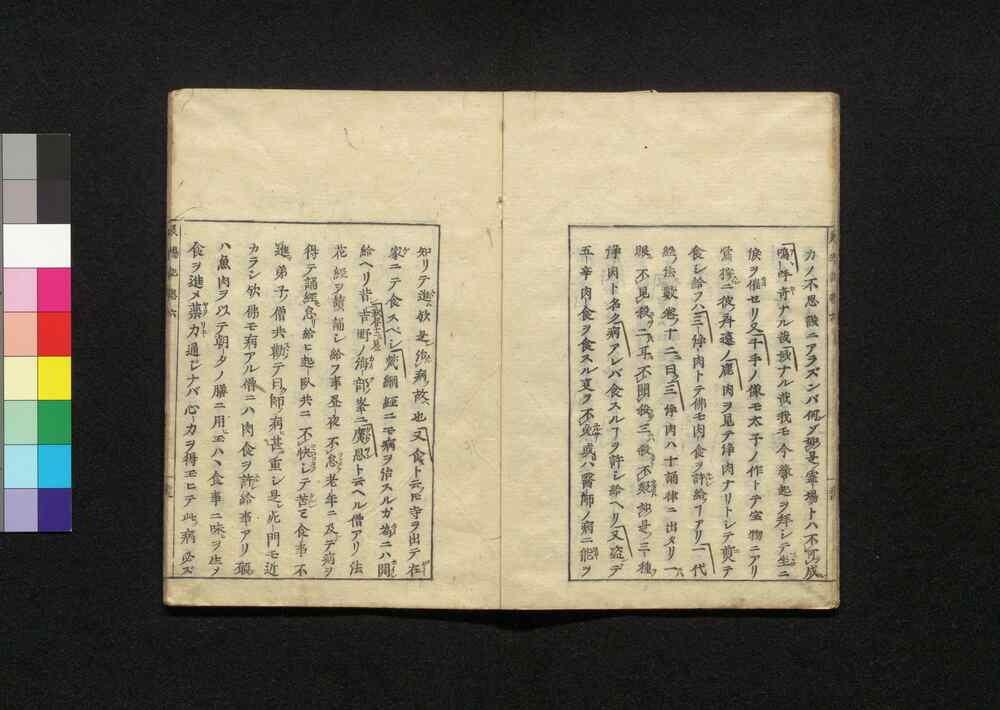 カノ不思議ニアラズンバ何ゾ如是霊場トハ不可成
嗚呼奇ナル哉誠ナル哉我モ今尊起ヲ拜シテ坐ニ
涙ヲ催セリ又千手ノ像モ太子ノ作トテ宝物ニアリ
食シ給フハ三ノ浄肉トテ佛モ肉食ヲ許給ーアリ一代
経ノ法數巻ノ十二ニ曰三浄肉ハ十誦律ニ出タリ一
眼不見殺二耳不聞殺三殺不疑如是三種
浄肉ト名ク病アレバ食スルヿヲ許シ給ヘリ又盗デ
五辛肉食ヲ食スル更ク不免或ハ醫師ノ病ニ能ヲ
知リテ進ム欤是ハ病故也又食ト云ヒ寺ヲ出テ在
家ニテ食スベシ梵網經ニモ病ヲ治スルガ為ニハ開
給ヘリ昔吉野ノ海部峯ニ廣恩ト云ヘル僧アリ法
花経ヲ讀誦シ給フ事昼夜不怠老年ニ及デ病ヲ
得テ誦經怠給ヒ起臥共ニ不快シテ苦ミ食事不
進弟子ノ僧共勧テ曰師ノ病甚重シ是死門モ近
カラン欤佛モ病アル僧ニハ肉食ヲ許給事アリ願
ハ魚肉ヲ以テ朝夕ノ膳ニ用玉ハヽ食事ニ味ヲ生メ
食ヲ進メ薬力通ジナバ心力ヲ得玉ヒテ此病必ズ